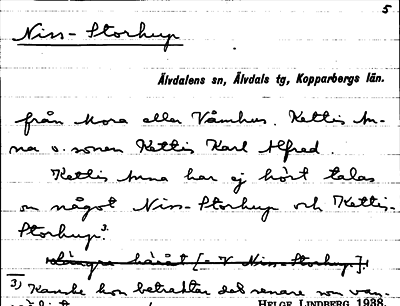 5
Niss-Storhup
Älvdalens sn, Älvdals tg, Kopparbergs län.
från Mora eller Våmhus. Kettis An-
na o. sonen Kettis Karl Alfred.
Kettis Anna har ej hört talas
om något Niss-Storhup och Kettis-
Storhup.³⁾
längre håååt [= V Niss-Storhup].
3) Kanske hon betraktar det senare som van-
HELGE LINDBERG 1938.